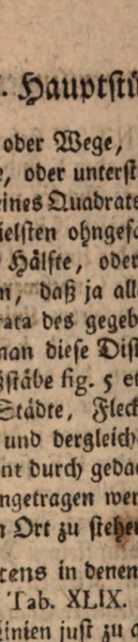 . Hauptstü
oder Wege,
e, oder unterst
eines Quadrate
ielsten ohngefä
Hälfte, oder
n, daß ja all
rata des gegeb
nan diese Dist
ßstäbe fig. 5 et
Städte, Fleck
und dergleich
nt durch gedac
ngetragen wer
n Ort zu stehe
tens in denen
Tab. XLIX.
Linien just zu